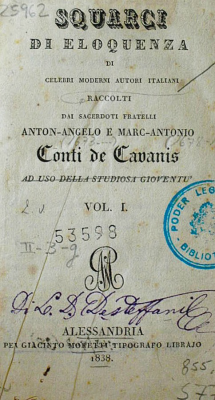 25962
SQUARCI
DI ELOQUENZA
DI
CELEBRI MODERNI AUTORI ITALIANI
RACCOLTI
DAI SACERDOTI FRATELLI
ANTON-ANGELO E MARC-ANTONIO
Conti de Cavanis
AD USO DELLA STUDIOSA GIOVENTU'
VOL. I.
53598
II-3-g
PODER LEG
BIBLIOT
Di L. D. Desteffanis
ALESSANDRIA
PER GIACINTO MORETTI TIPOGRAFO LIBRAJO
1838.
855,